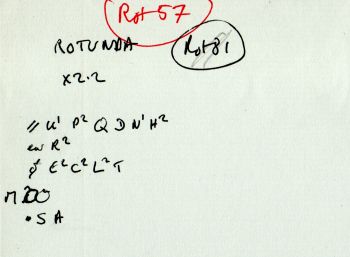 Rot 57
ROTUNDA Rot 81
X2.2
// U¹ P² Q D N¹ H²
R²
E² C² L² T
• S A